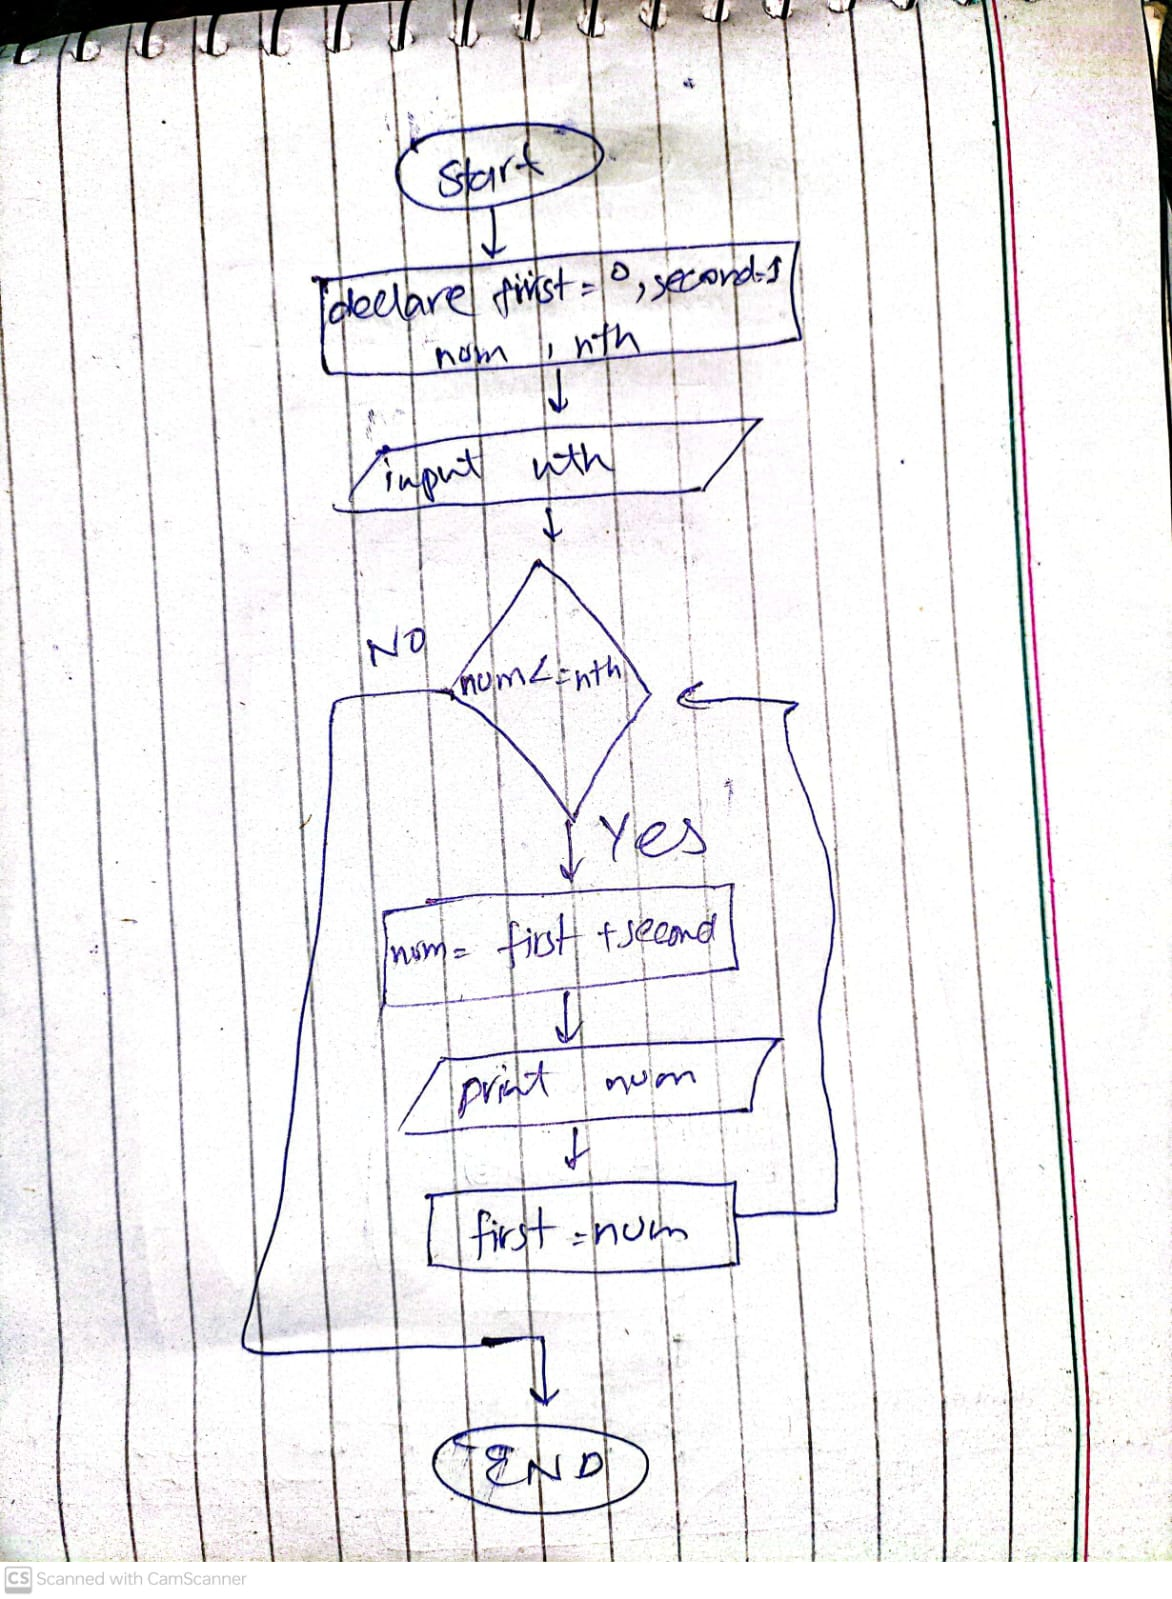 Start
declare first = 0, second=1
num , nth
input nth
NO
num<=nth
Yes
num= first +second
print num
first =num
END
CS Scanned with CamScanner